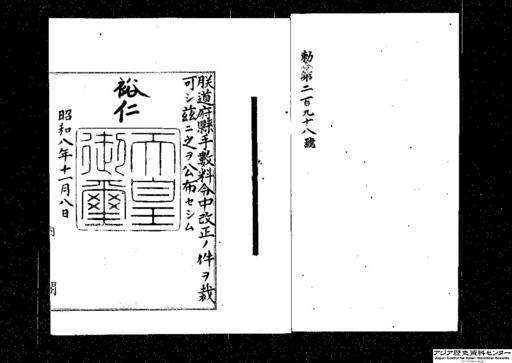 勅令第二百九十八號
朕道府縣手數料令中改正ノ件ヲ裁
可シ茲ニ之ヲ公布セシム
裕仁
天皇
御璽
昭和八年十一月八日
内
閣
アジア歴史資料センター
Japan Center for Asian Historical Records